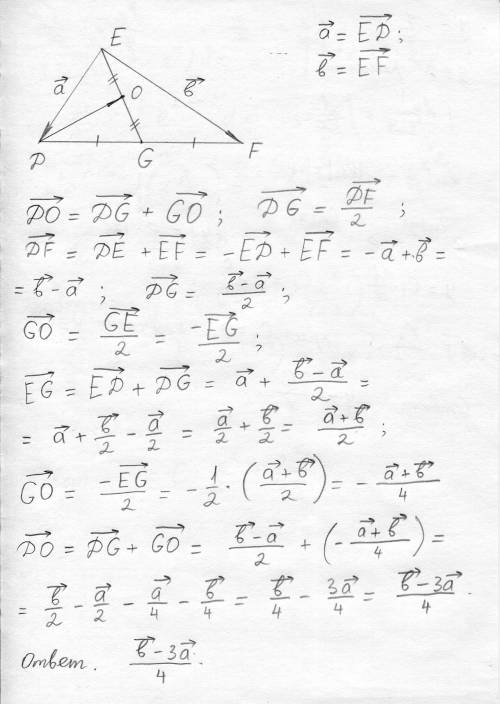 E
a⃗ = E⃗D⃗ ;
b⃗ = E⃗F⃗
a⃗
O
b⃗
D
G
F
D⃗O⃗ = D⃗G⃗ + G⃗O⃗ ; D⃗G⃗ = D⃗F⃗/2 ;
D⃗F⃗ = D⃗E⃗ + E⃗F⃗ = -E⃗D⃗ + E⃗F⃗ = -a⃗ + b⃗ =
= b⃗ - a⃗ ; D⃗G⃗ = (b⃗ - a⃗)/2 ;
G⃗O⃗ = G⃗E⃗/2 = -E⃗G⃗/2 ;
E⃗G⃗ = E⃗D⃗ + D⃗G⃗ = a⃗ + (b⃗ - a⃗)/2 =
= a⃗ + b⃗/2 - a⃗/2 = a⃗/2 + b⃗/2 = (a⃗ + b⃗)/2 ;
G⃗O⃗ = -E⃗G⃗/2 = -1/2 · ((a⃗ + b⃗)/2) = - (a⃗ + b⃗)/4
D⃗O⃗ = D⃗G⃗ + G⃗O⃗ = (b⃗ - a⃗)/2 + (-(a⃗ + b⃗)/4) =
= b⃗/2 - a⃗/2 - a⃗/4 - b⃗/4 = b⃗/4 - 3a⃗/4 = (b⃗ - 3a⃗)/4 .
Ответ. (b⃗ - 3a⃗)/4 .